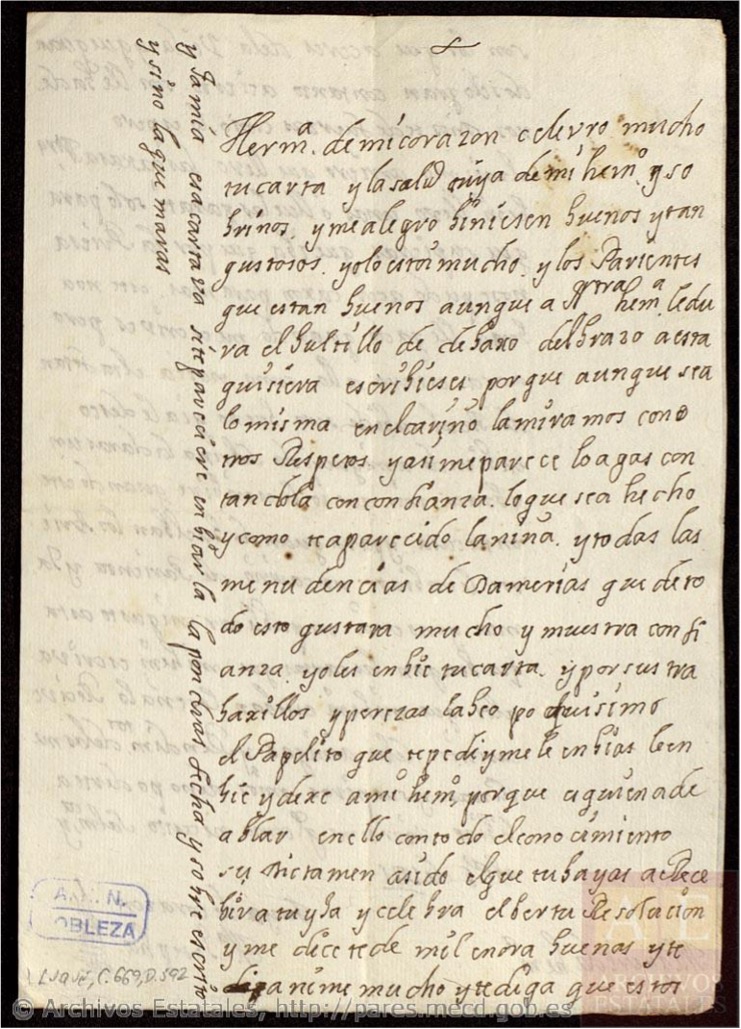 Herm.ª de mi corazon celevro mucho
tu carta y la salud tuya de mi herm.º y so
brinos. y me alegro biniesen buenos y tan
gustosos. yo lo estoi mucho. y los Parientes
que estan buenos aunque a Nrtra hem.ª le du
ra el bultillo de debaxo del brazo a esta
quisiera escribieses porque aunque sea
lo misma en el cariño la miramos con o
tros Respetos y asi me parece lo agas con
tandola con confianza. lo que sea hecho
y como te a parecido la niña. y todas las
menudencias de Damerias que de to
do esto gustara mucho y muestra confi
anza. yo les enbie tu carta. y por sus tra
baxillos y perezas la beo poquisimo
el Papelito que te pedi y me le enbias le en
bie y dexe a mi hem.º porque es quien a de
ablar en ello con todo el conocimiento
su Dictamen a sido el que tu bayas a Rece
bir a tu yJa y celebra el ber tu Resolucion
y me dice te de mil enora buenas y te
anime mucho y te diga que estos
y la mia esa carta va si te pareciere enbiarla la pondras fecha y sobre escrito
y sino la quemaras
A. N.
NOBLEZA
Luque, C.669, D.592
AE
ARCHIVOS
ESTATALES
© Archivos Estatales, http://pares.mecd.gob.es